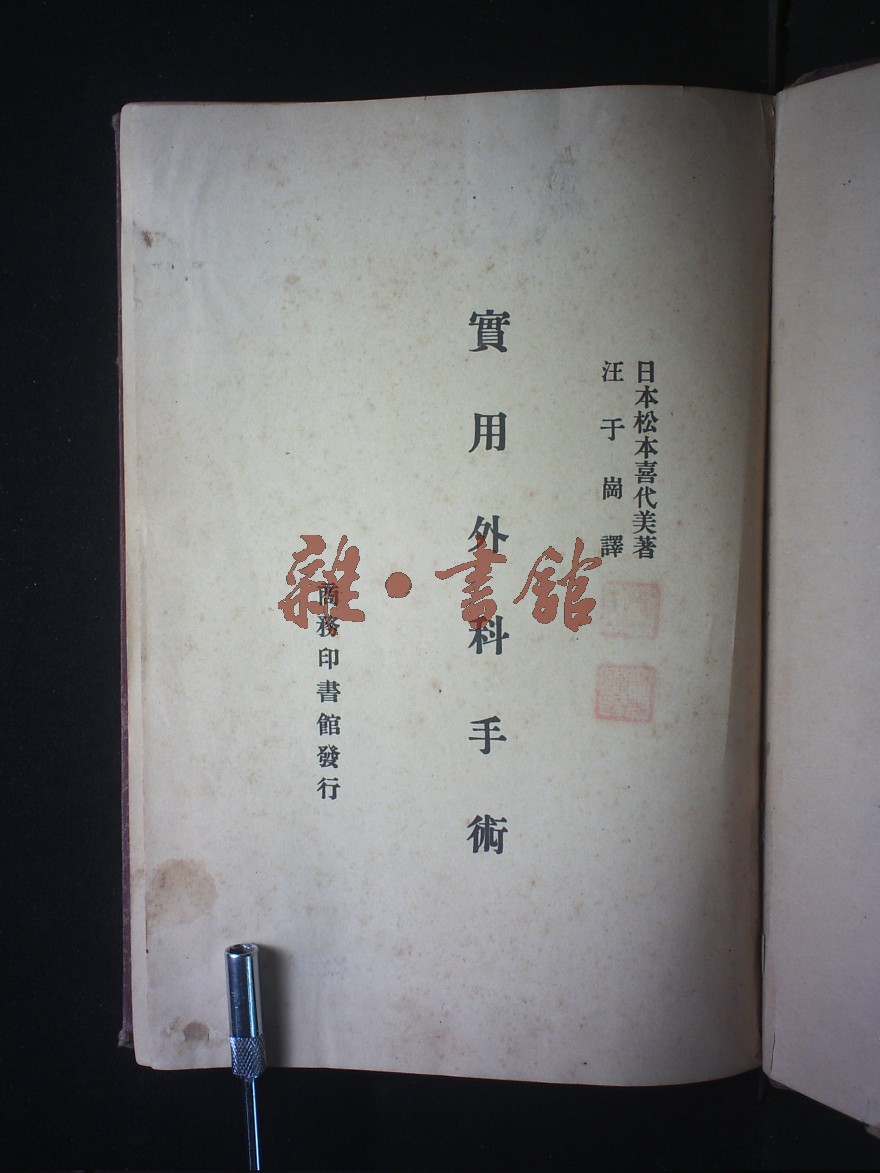 日本松本喜代美著
汪于崗譯
實用外科手術
商務印書館發行
雜·書館